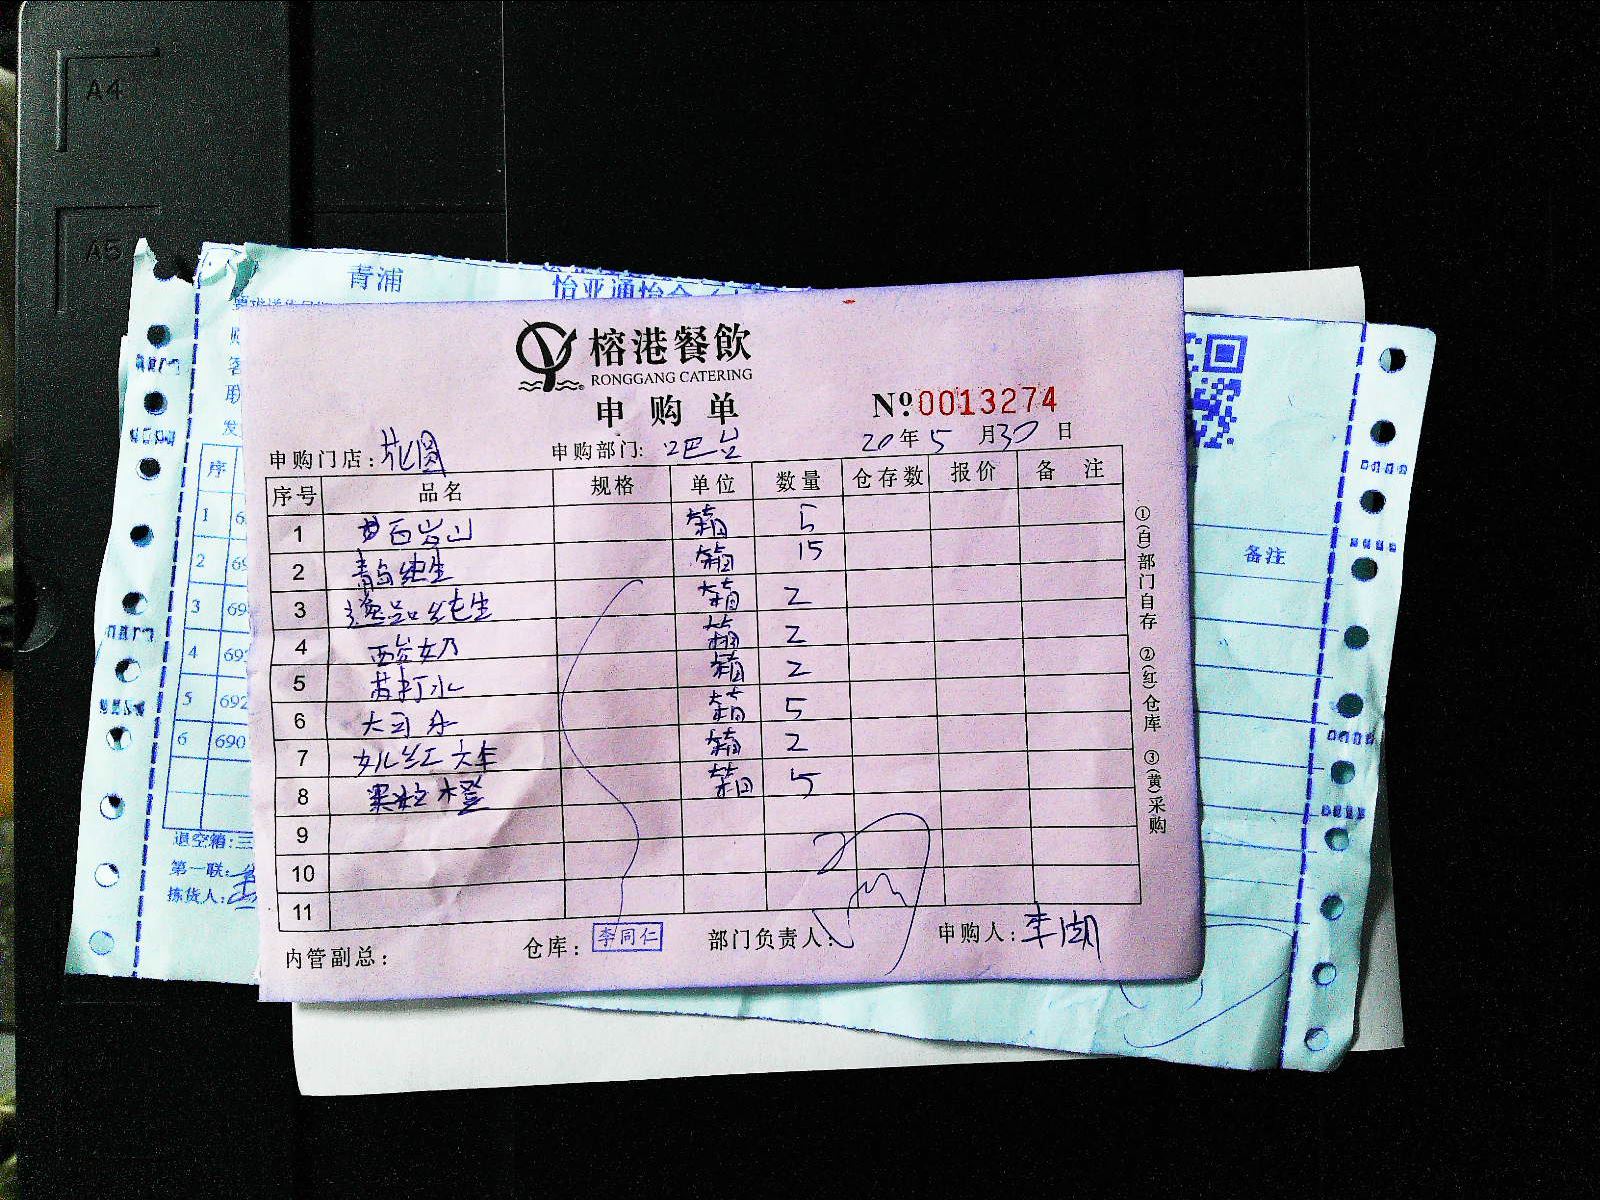 A4
A5
青浦
榕港餐飲
RONGGANG CATERING
申购单
№0013274
申购门店:
申购部门: 吧台
20年5月30日
序号 品名 规格 单位 数量 仓存数 报价 备注
1 百岁山 箱 5
2 青岛纯生 箱 15
3 逸品纯生 箱 2
4 酸奶 箱 2
5 苏打水 箱 2
6 大可乐 箱 5
7 箱 2
8 果粒橙 箱 5
9
10
11
内管副总:
仓库: 李同仁
部门负责人:
申购人: 李湖
①(白)部门自存 ②(红)仓库 ③(黄)采购
序
1
2 69
3 69
4 69
5 692
6 690
备注
退空箱:三
第一联:
拣货人: